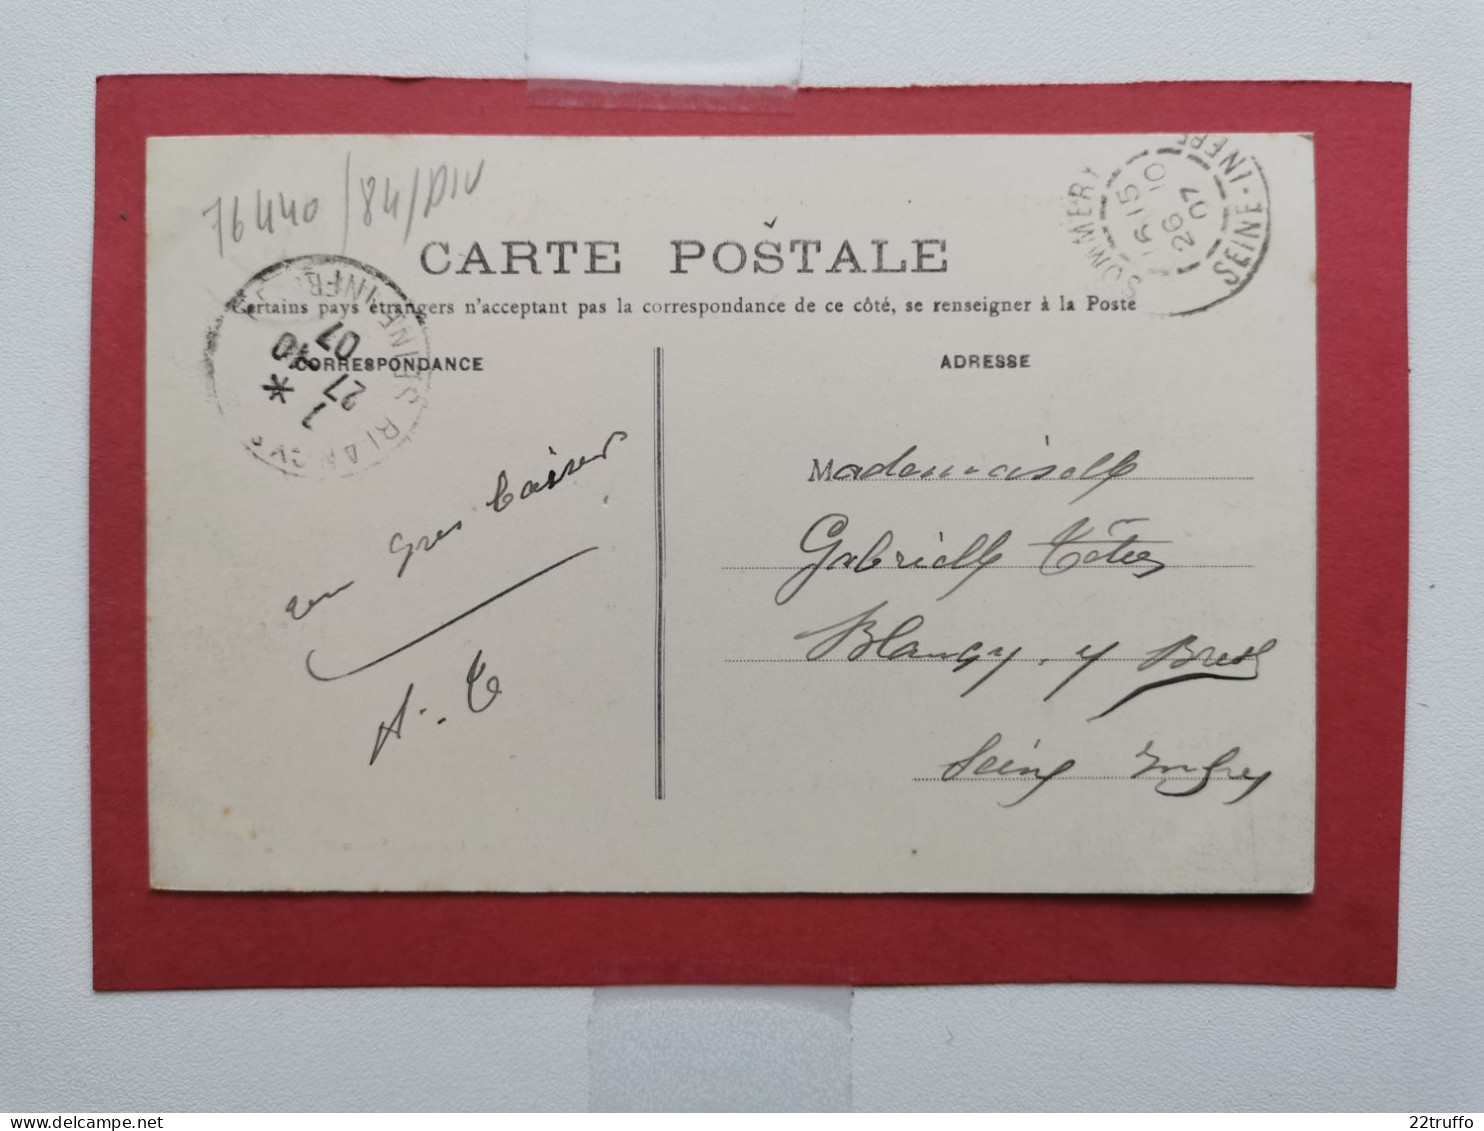 76440/84/DIV
CARTE POSTALE
Certains pays étrangers n'acceptent pas la correspondance de ce côté, se renseigner à la Poste
SOMMERY
SEINE-INFRE
15
26 10
07
BLANGY
SEINE INFRE
1 *
27 10
07
CORRESPONDANCE
ADRESSE
un gros baiser
A. T
Mademoiselle
Gabrielle
Blangy. s/ Bresle
Seine Infre
22truffo